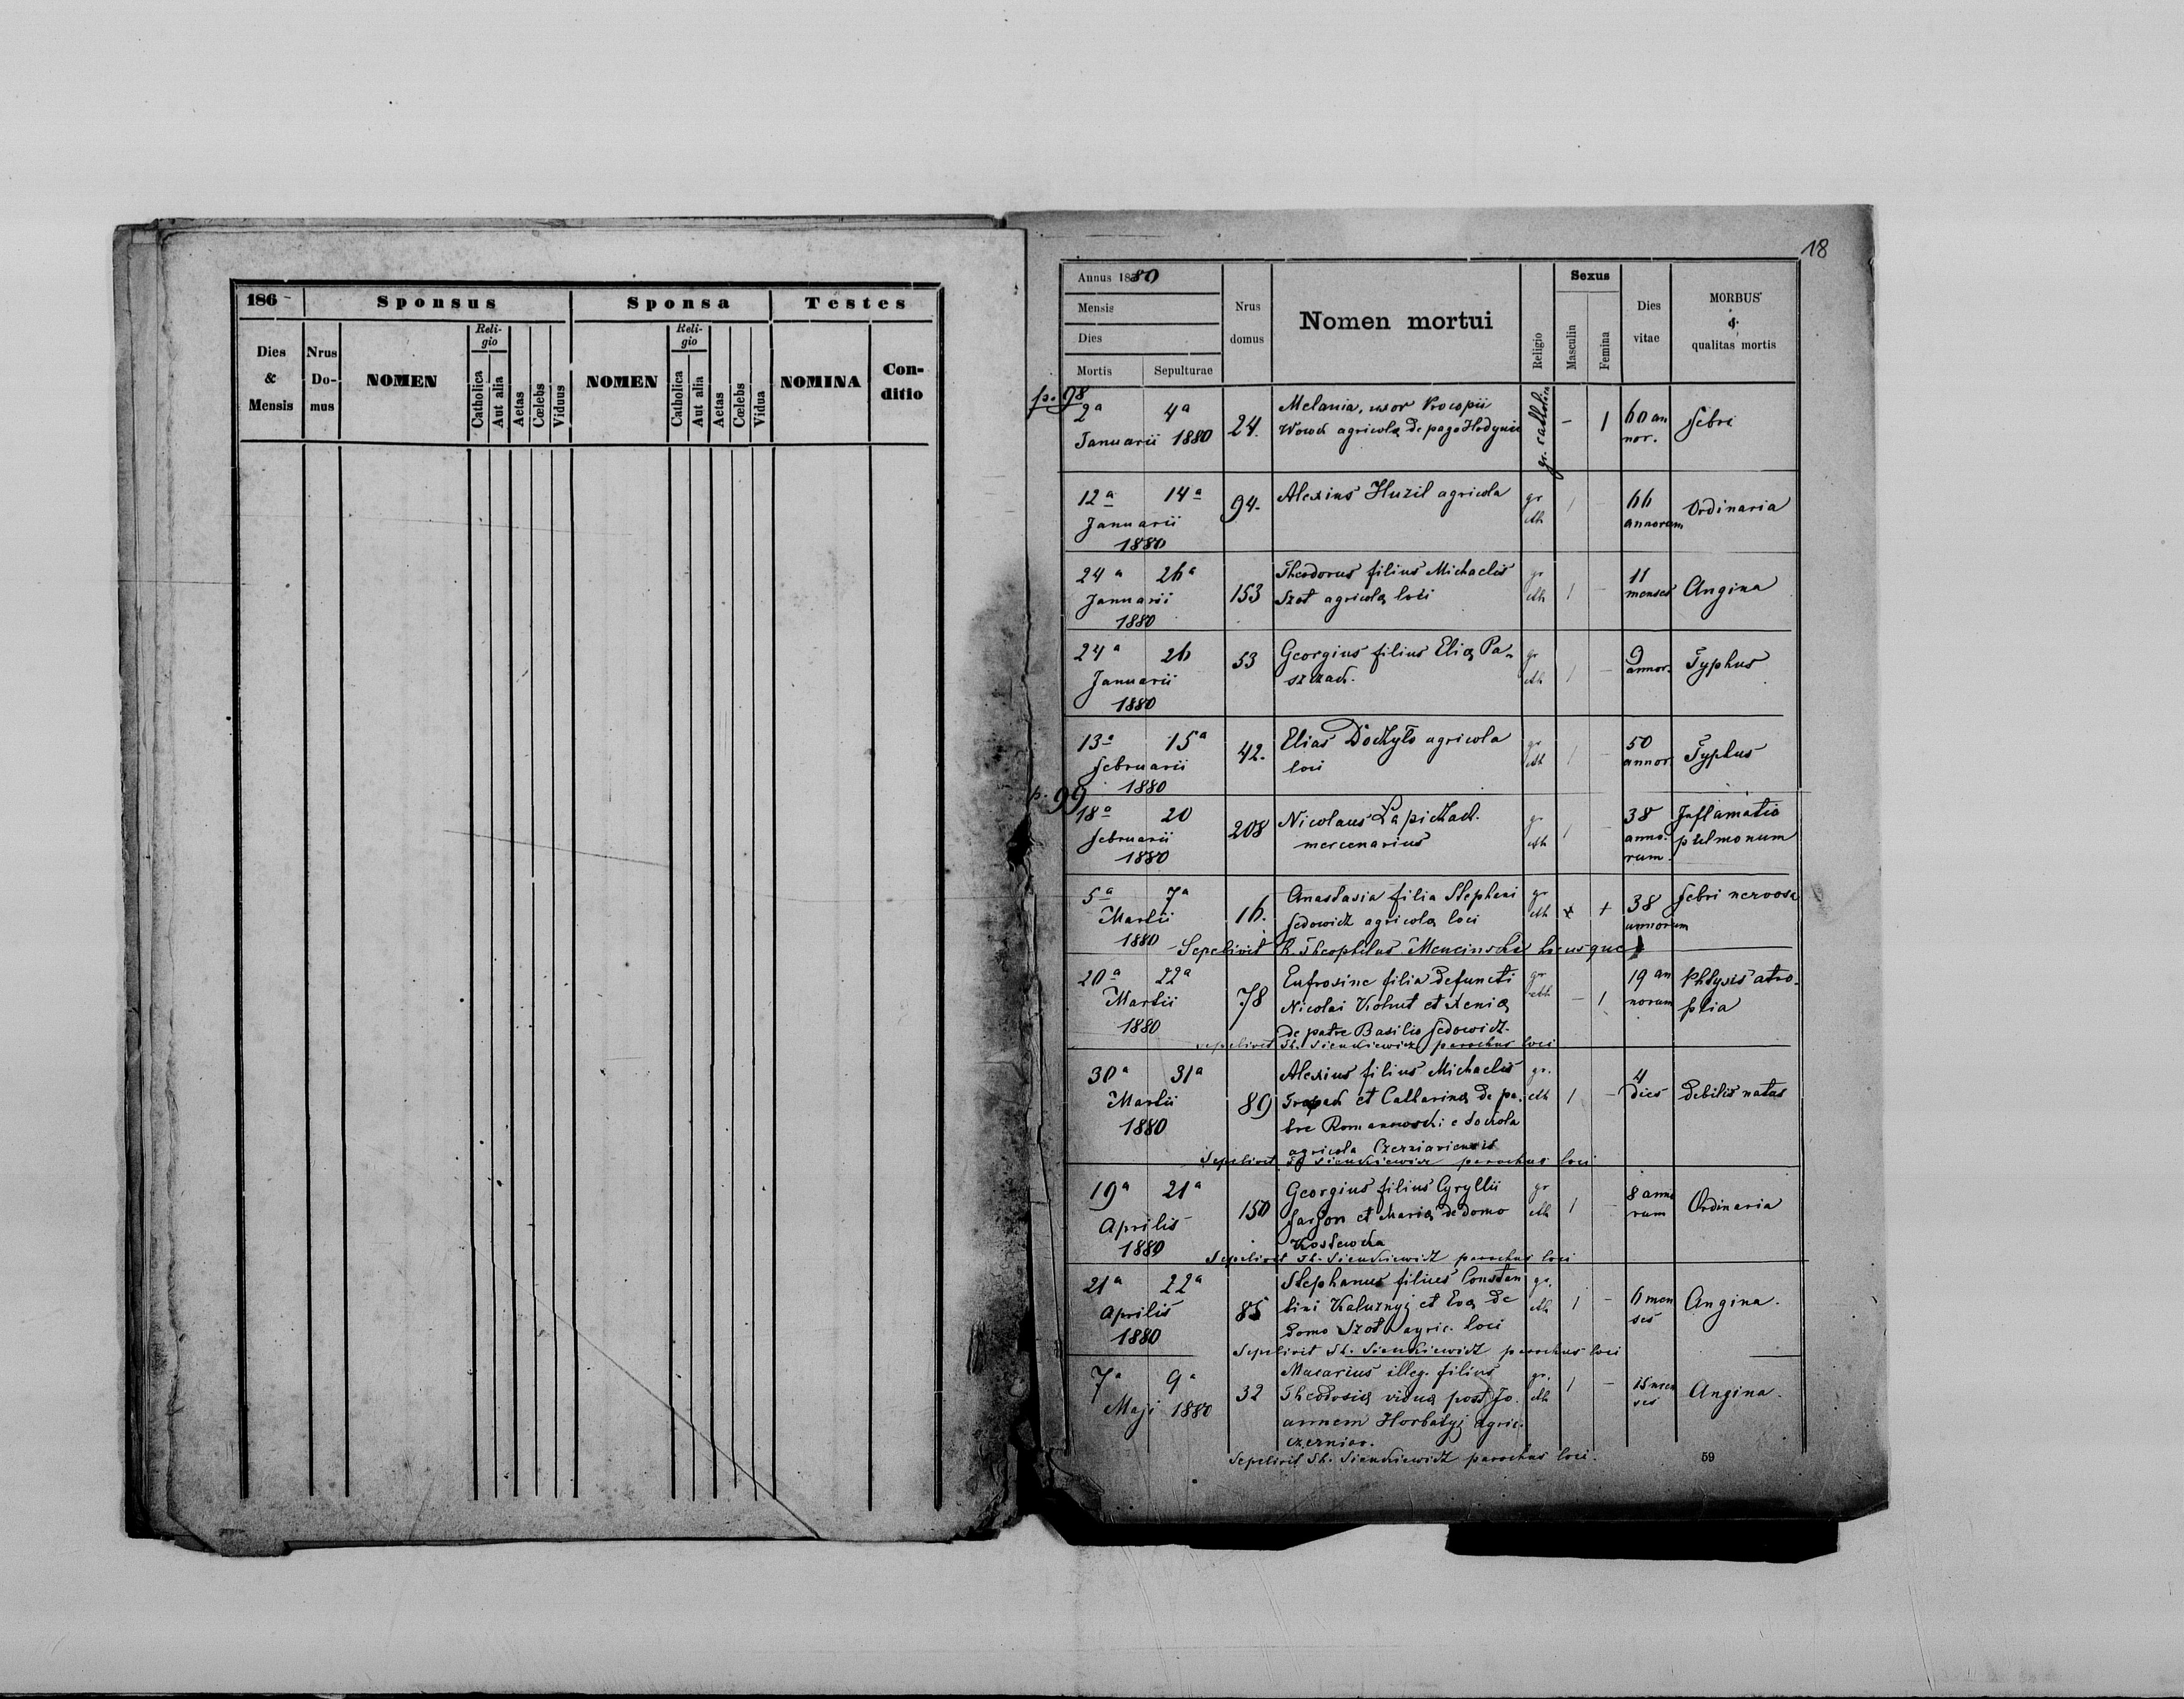 186
Sponsus
Sponsa
Testes
Dies & Mensis
Nrus Do-mus
NOMEN
Reli-gio
Catholica
Aut alia
Aetas
Cœlebs
Viduus
NOMEN
Reli-gio
Catholica
Aut alia
Aetas
Cœlebs
Vidua
NOMINA
Con-ditio
18
Annus 1880
Mensis
Dies
Mortis
Sepulturae
Nrus domus
Nomen mortui
Religio
Sexus
Masculin
Femina
Dies vitae
MORBUS & qualitas mortis
p. 98
2a 4a 24. Melania, uxor Procopii gr. catholica - 1 60 an Febri
Januarii 1880 agricola de pago Hodynie nor.
12a 14a 94. Alexius Huzil agricola gr 1 - 66 Ordinaria
Januarii cth annorum
1880
24a 26a 153 Theodorus filius Michaelis gr 1 - 11 Angina
Januarii Szot agricola loci cth menses
1880
24a 26 53 Georgius filius Elia Pa- gr 1 - 9 Typhus
Januarii cth annor.
1880
13a 15a 42. Elias agricola gr 1 - 50 Typhus
Februarii loci cth annor
1880
p. 99
18a 20 208 Nicolaus gr 1 - 38 Inflamatio
Februarii mercenarius cth anno- pulmonum
1880 rum
5a 7a 16. Anastasia filia Stephani gr + 38 Febri nervosa
Martii Fedowicz agricola loci cth annorum
1880 Sepelivit R. Theophilus Mencinski hucusque
20a 22a 78 Eufrosine filia defuncti gr - 1 19 an Phtysis atro-
Martii Nicolai Kohut et Xenia cth norum phia
1880 de patre Basilio Fedowicz
sepelivit Th. Sienkiewicz parochus loci
30a 31a 89 Alexius filius Michaelis gr. 1 - 4 debilis natus
Martii et Catharina de pa- cth dies
1880 tre Romanowski e Sokola
agricola
Sepelivit Th Sienkiewicz parochus loci
19a 21a 150 Georgius filius Cyryllii gr 1 - 8 anno Ordinaria
Aprilis et Maria de domo cth rum
1880
Sepelivit Th. Sienkiewicz parochus loci
21a 22a 85 Stephanus filius Constan gr. 1 - 6 men Angina.
Aprilis tini Kaluznyj et Eva de cth ses
1880 domo Szot agric. loci
Sepelivit Th. Sienkiewicz parochus loci
7a 9a 32 Macarius illeg. filius gr. 1 - 15 men Angina.
Maji 1880 Theodosia vidua post Jo- cth ses
annem Horbatyj agric.
czerniav.
Sepelivit Th. Sienkiewicz parochus loci.
59